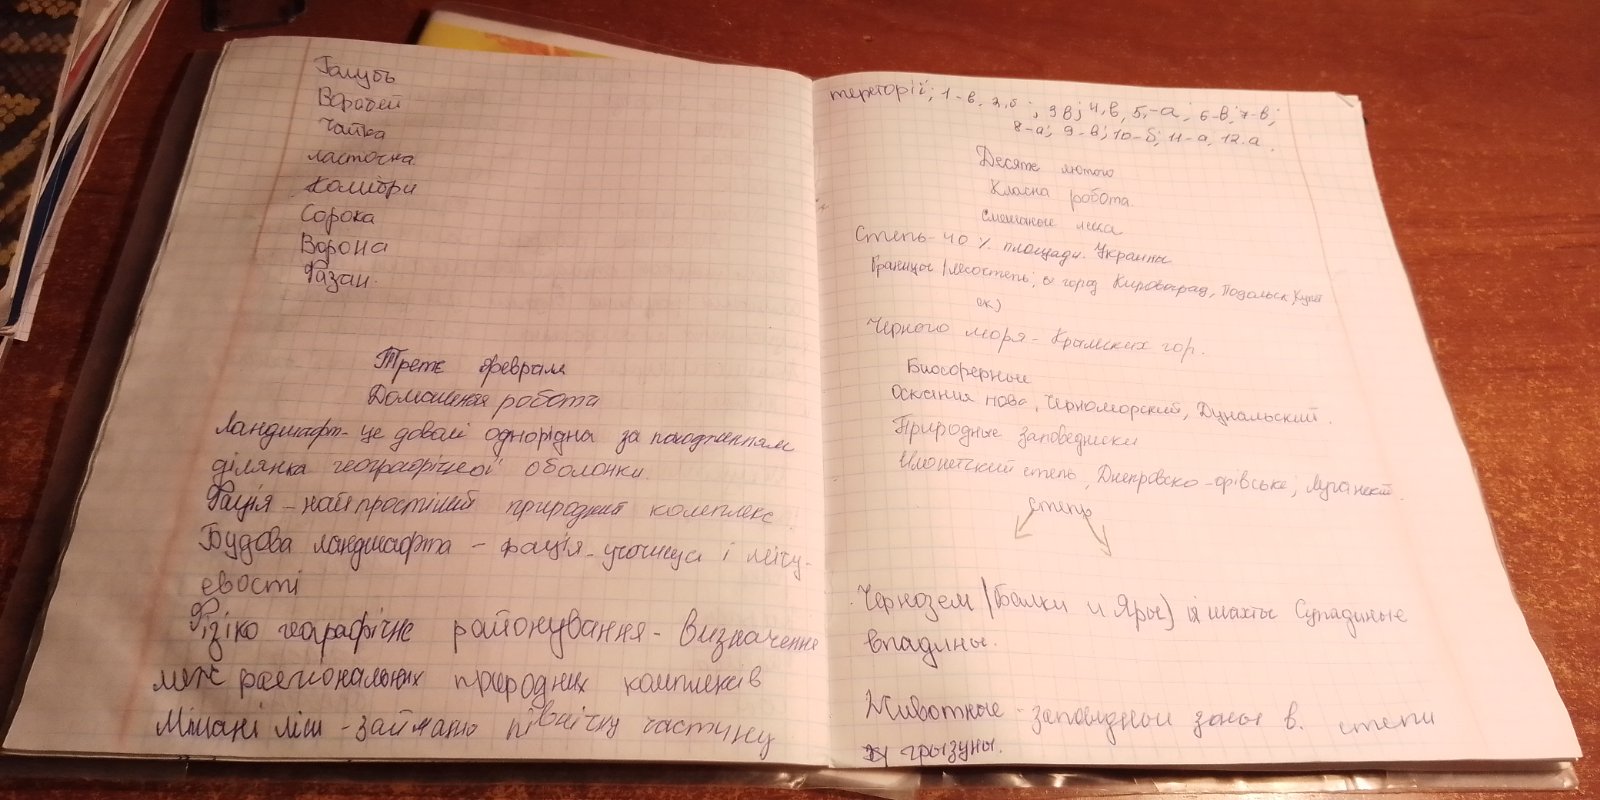 Голубь
Воробей
Чайка
ласточка
Колибри
Сорока
Ворона
Фазан.
Третє февраля
Домашня робота
Ландшафт - це доволі однорідна за походженням
ділянка географічної оболонки.
Фація - найпростіший природний комплекс
Будова ландшафта - фація - уочища і місцу-
евості
Фізіко географічне районування - Визначення
меж регіональних природних комплексів
Мішані ліси - займають північну частину
теріторії; 1-в, 2,б; 3в; 4,в, 5,-а; 6-в; 7-в;
8-а; 9-в; 10-б; 11-а, 12.а.
Десяте лютого
Класна робота.
смешаные леса
Степь - 40 % площади. Украины
Границы /лесостепь; город Кировоград, Подольск,
ск)
Черного моря - Крымских гор.
Биосферные
Аскания нова, Черноморский, Дунайский.
Природные заповедники
степь, Днепровско - орівське,
степь
Чернозем (Балки и Яры) шахты
впадины.
Животные - зоны в. степи
грызуны.